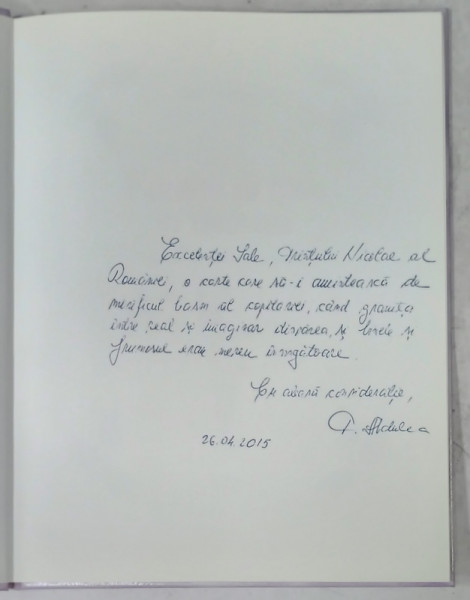 Excelenței Sale, Prințului Nicolae al
României, o carte care să-i amintească de
mirificul basm al copilăriei, când granița
între real și imaginar dispărea, și binele și
frumosul erau mereu învingătoare.
Cu aleasă considerație,
26.04.2015